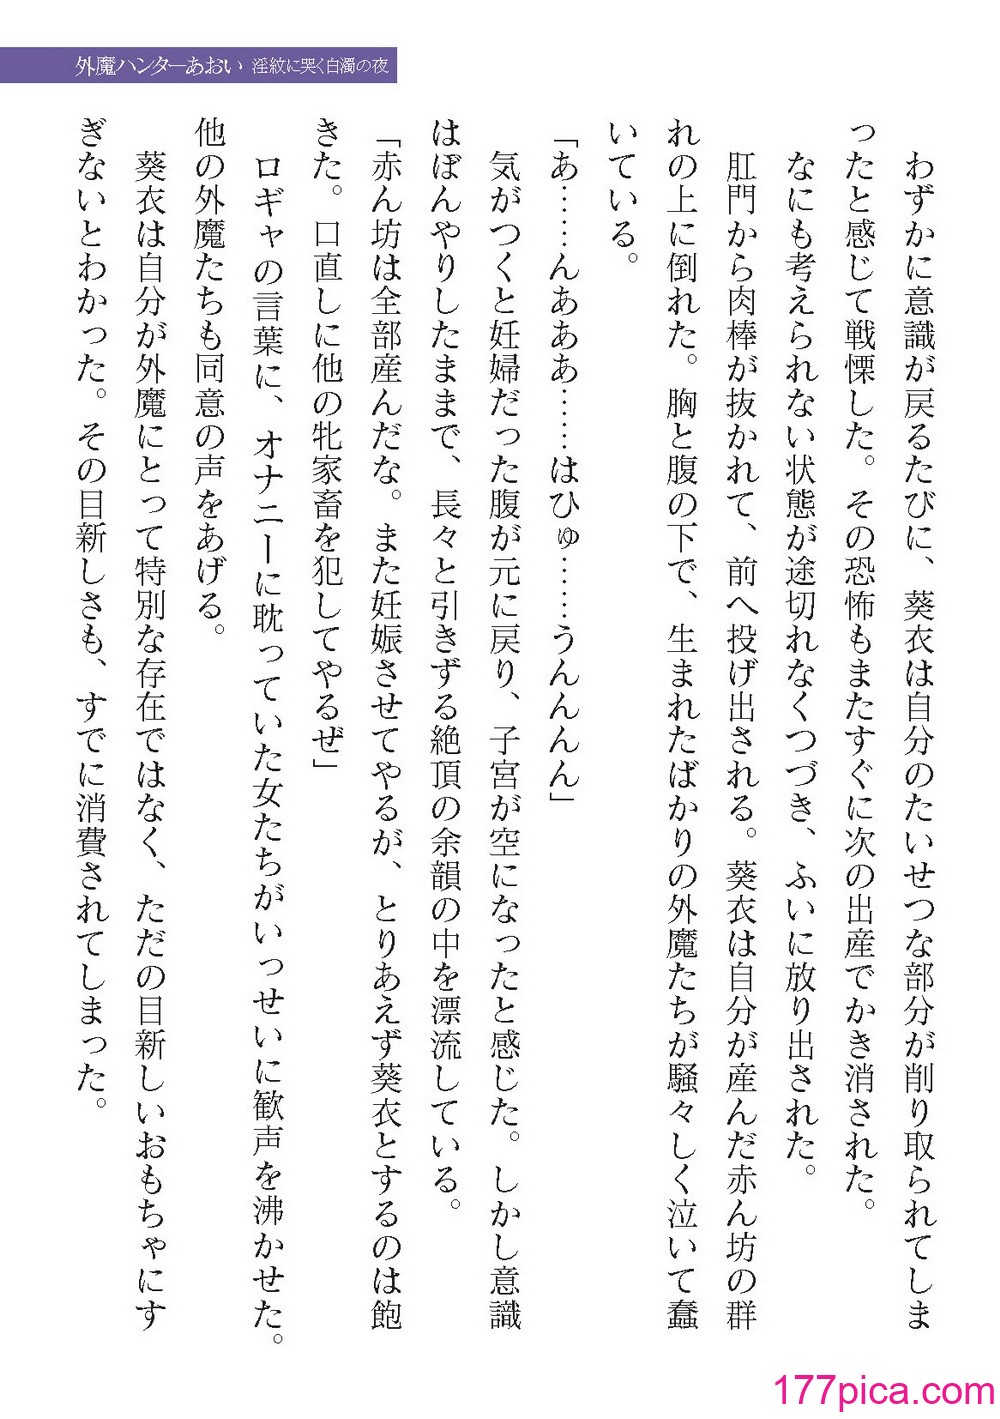 外魔ハンターあおい 淫紋に哭く白濁の夜
わずかに意識が戻るたびに、葵衣は自分のたいせつな部分が削り取られてしま
ったと感じて戦慄した。その恐怖もまたすぐに次の出産でかき消された。
なにも考えられない状態が途切れなくつづき、ふいに放り出された。
肛門から肉棒が抜かれて、前へ投げ出される。葵衣は自分が産んだ赤ん坊の群
れの上に倒れた。胸と腹の下で、生まれたばかりの外魔たちが騒々しく泣いて蠢
いている。
「あ……んあああ……はひゅ……うんんんん」
気がつくと妊婦だった腹が元に戻り、子宮が空になったと感じた。しかし意識
はぼんやりしたままで、長々と引きずる絶頂の余韻の中を漂流している。
「赤ん坊は全部産んだな。また妊娠させてやるが、とりあえず葵衣とするのは飽
きた。口直しに他の牝家畜を犯してやるぜ」
ロギャの言葉に、オナニーに耽っていた女たちがいっせいに歓声を沸かせた。
他の外魔たちも同意の声をあげる。
葵衣は自分が外魔にとって特別な存在ではなく、ただの目新しいおもちゃにす
ぎないとわかった。その目新しさも、すでに消費されてしまった。
177pica.com